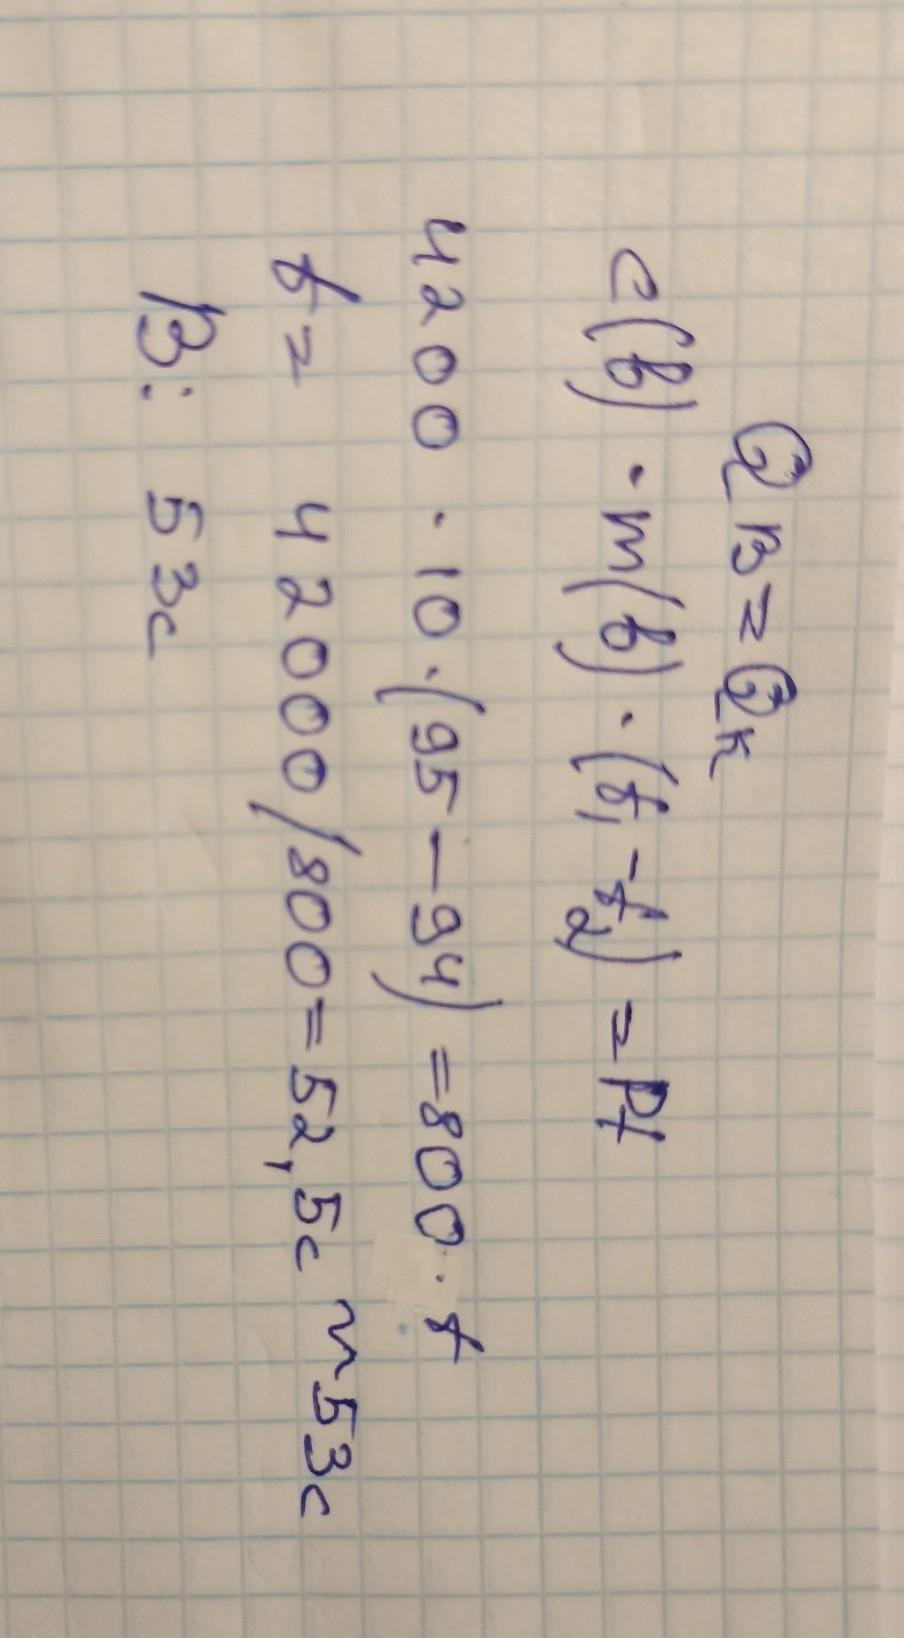 Qв=Qк
c(в)·m(в)·(t₁-t₂)=Pt
4200·10·(95-94)=800·t
t= 42000/800=52,5c ~53c
В: 53c